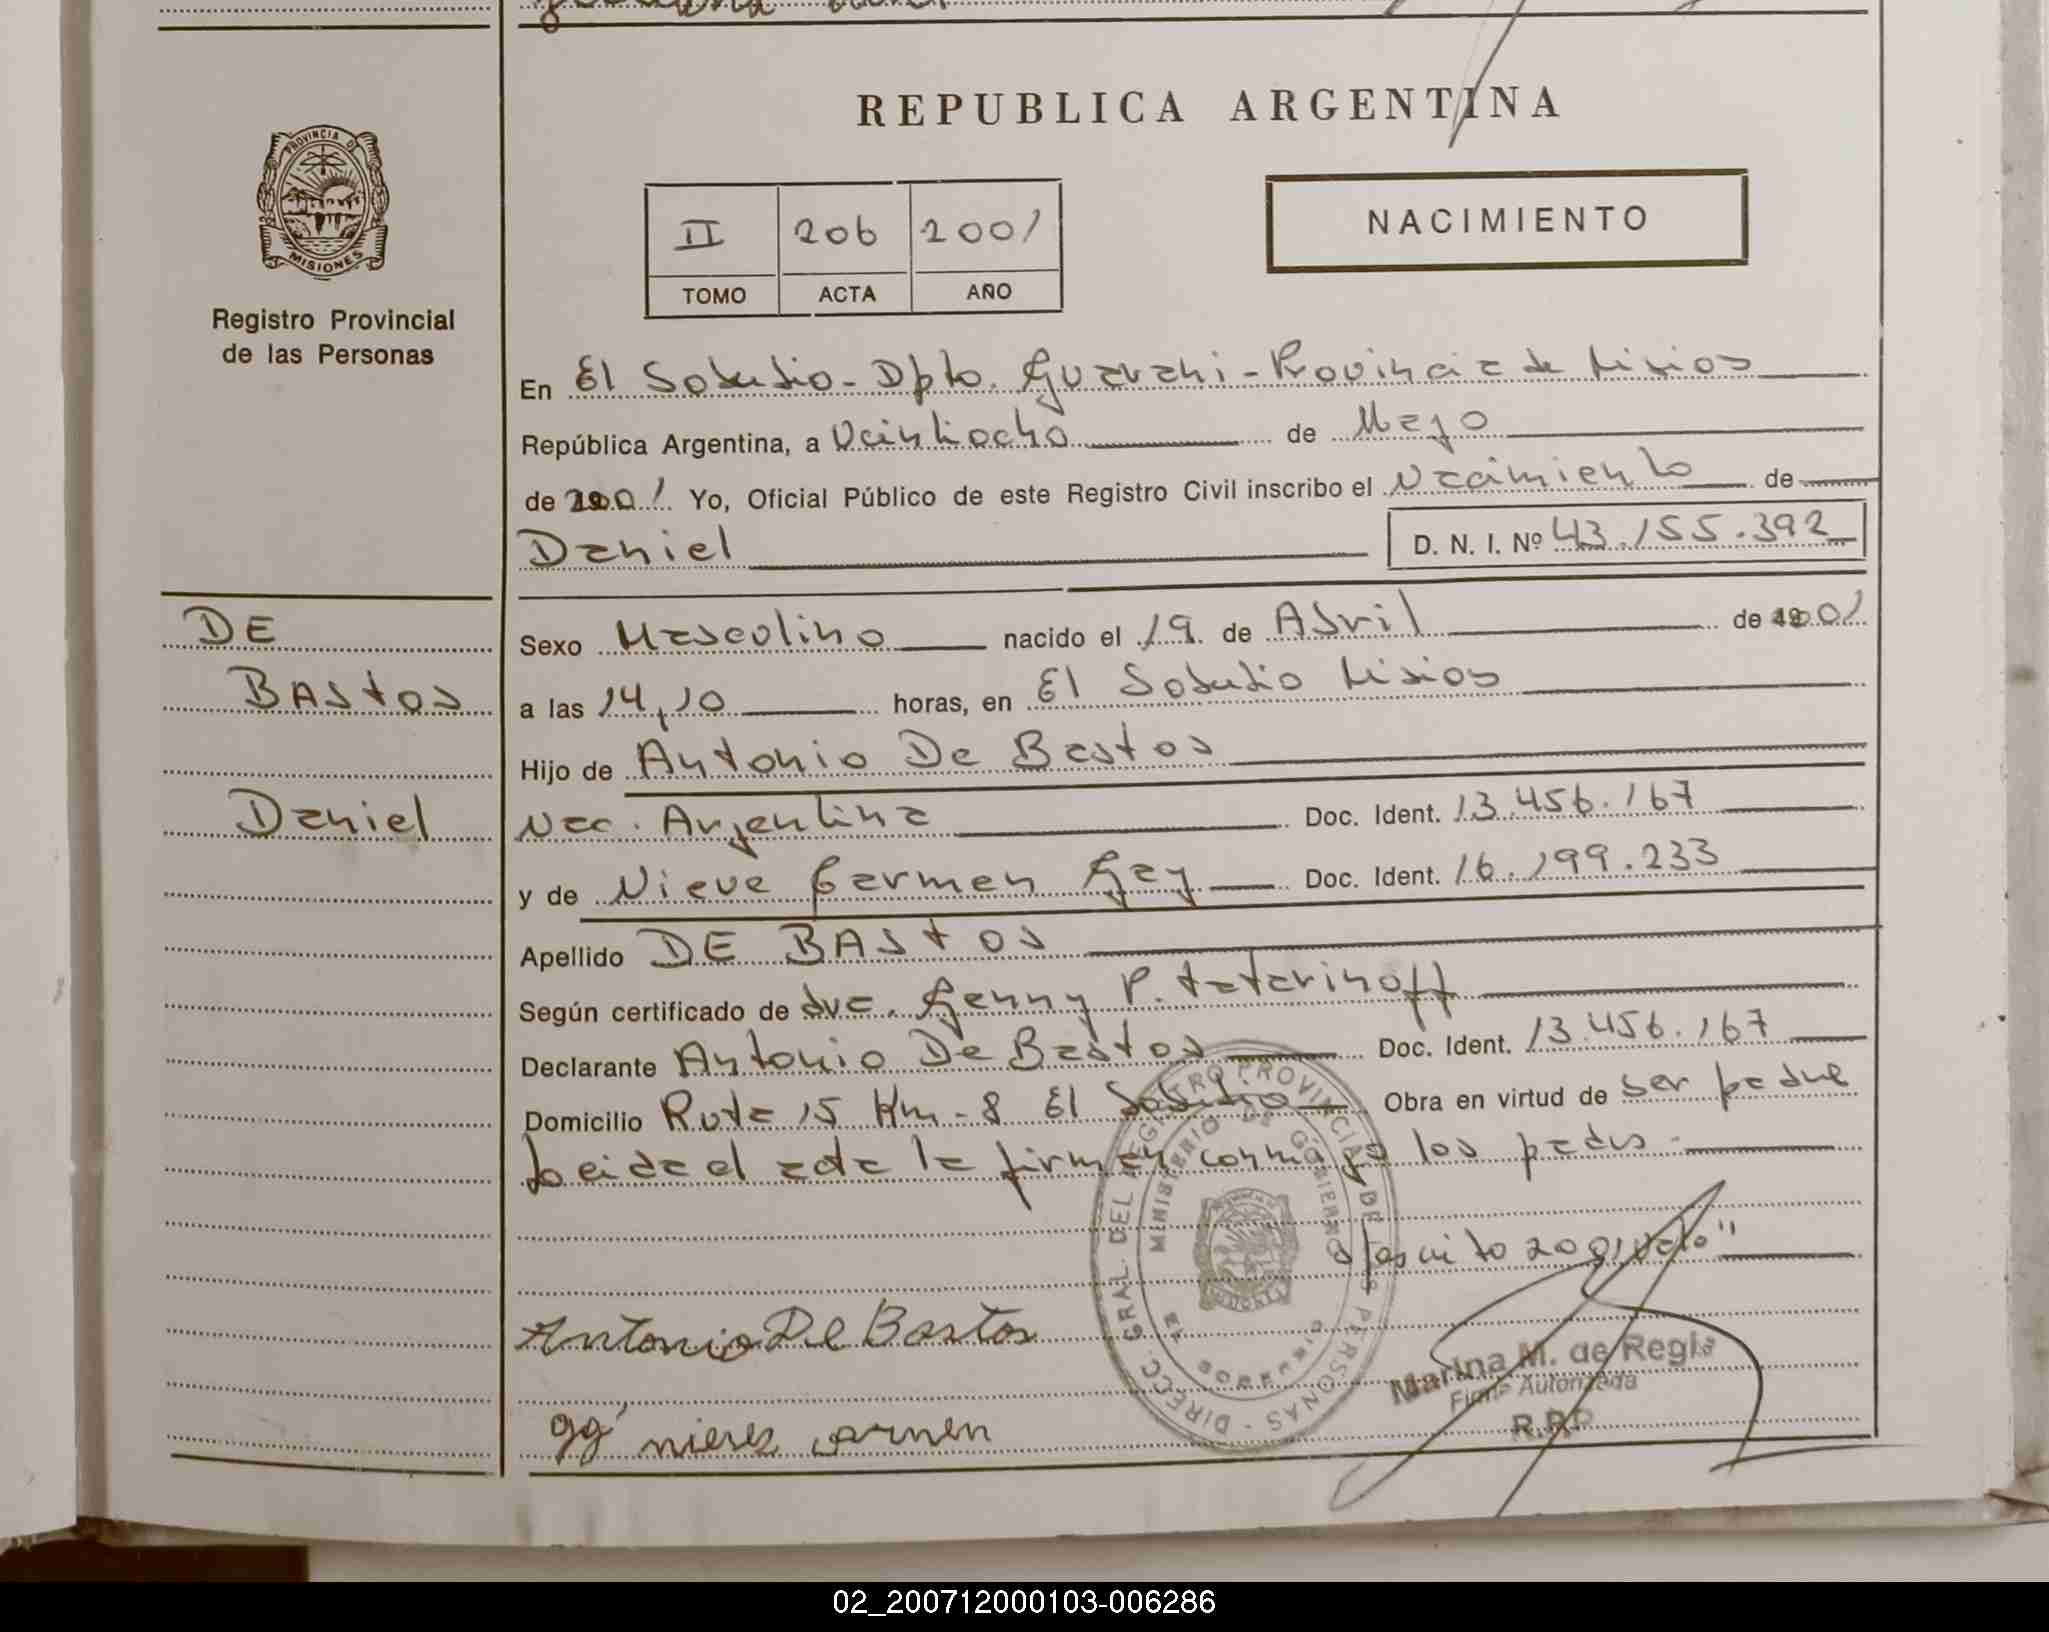 REPUBLICA ARGENTINA
PROVINCIA DE
MISIONES
Registro Provincial
de las Personas
II 206 2001
TOMO ACTA AÑO
NACIMIENTO
En El Soberbio - Dpto. Guarani - Provincia de Misiones
República Argentina, a Veintiocho de Mayo
de 2001 Yo, Oficial Público de este Registro Civil inscribo el Nacimiento de
Daniel D. N. I. Nº 43.155.392
DE
BASTOS
Daniel
Sexo Masculino nacido el 19 de Abril de 2001
a las 14,10 horas, en El Soberbio Misiones
Hijo de Antonio De Bastos
Nac. Argentina Doc. Ident. 13.456.167
y de Nieve Carmen Gay Doc. Ident. 16.199.233
Apellido DE BASTOS
Según certificado de dra. Genny P. Tatarinoff
Declarante Antonio De Bastos Doc. Ident. 13.456.167
Domicilio Ruta 15 Km - 8 El Soberbio Obra en virtud de ser padre
Leida el acta la firman conmigo los padres
2001
DIRECC. GRAL. DEL REGISTRO PROVINCIAL DE LAS PERSONAS
MINISTERIO DE GOBIERNO
EL SOBERBIO
Antonio De Bastos
Marina M. de Regis
Firma Autorizada
R.P.P.
nieves carmen
02_200712000103-006286